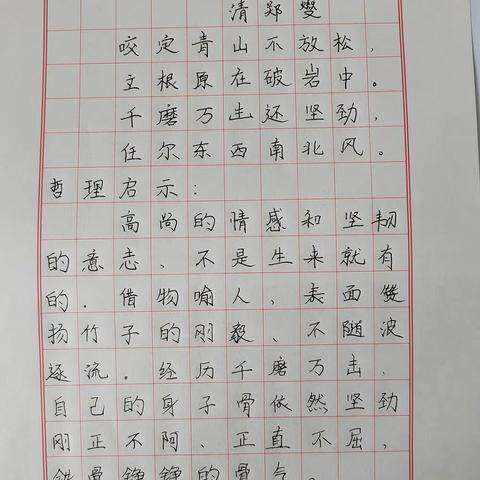 清郑燮
咬定青山不放松,
立根原在破岩中。
千磨万击还坚劲,
任尔东西南北风。
哲理启示:
高尚的情感和坚韧
的意志、不是生来就有
的.借物喻人、表面
扬竹子的刚毅、不随波
逐流.经历千磨万击、
自己的身子骨依然坚劲
刚正不阿、正直不屈、
铁骨铮铮的骨气。